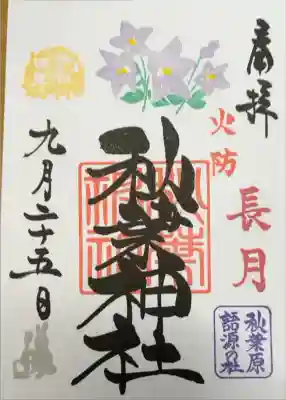 奉拝
火防
長月
秋葉神社
九月二十五日
秋葉原
語源の社